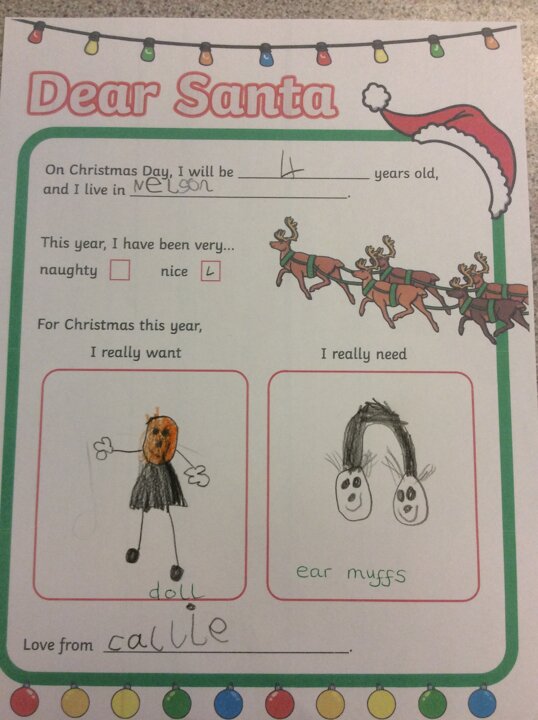 Dear Santa
On Christmas Day, I will be 4 years old,
and I live in Nelson.
This year, I have been very...
naughty nice
For Christmas this year,
I really want I really need
doll ear muffs
Love from callie.